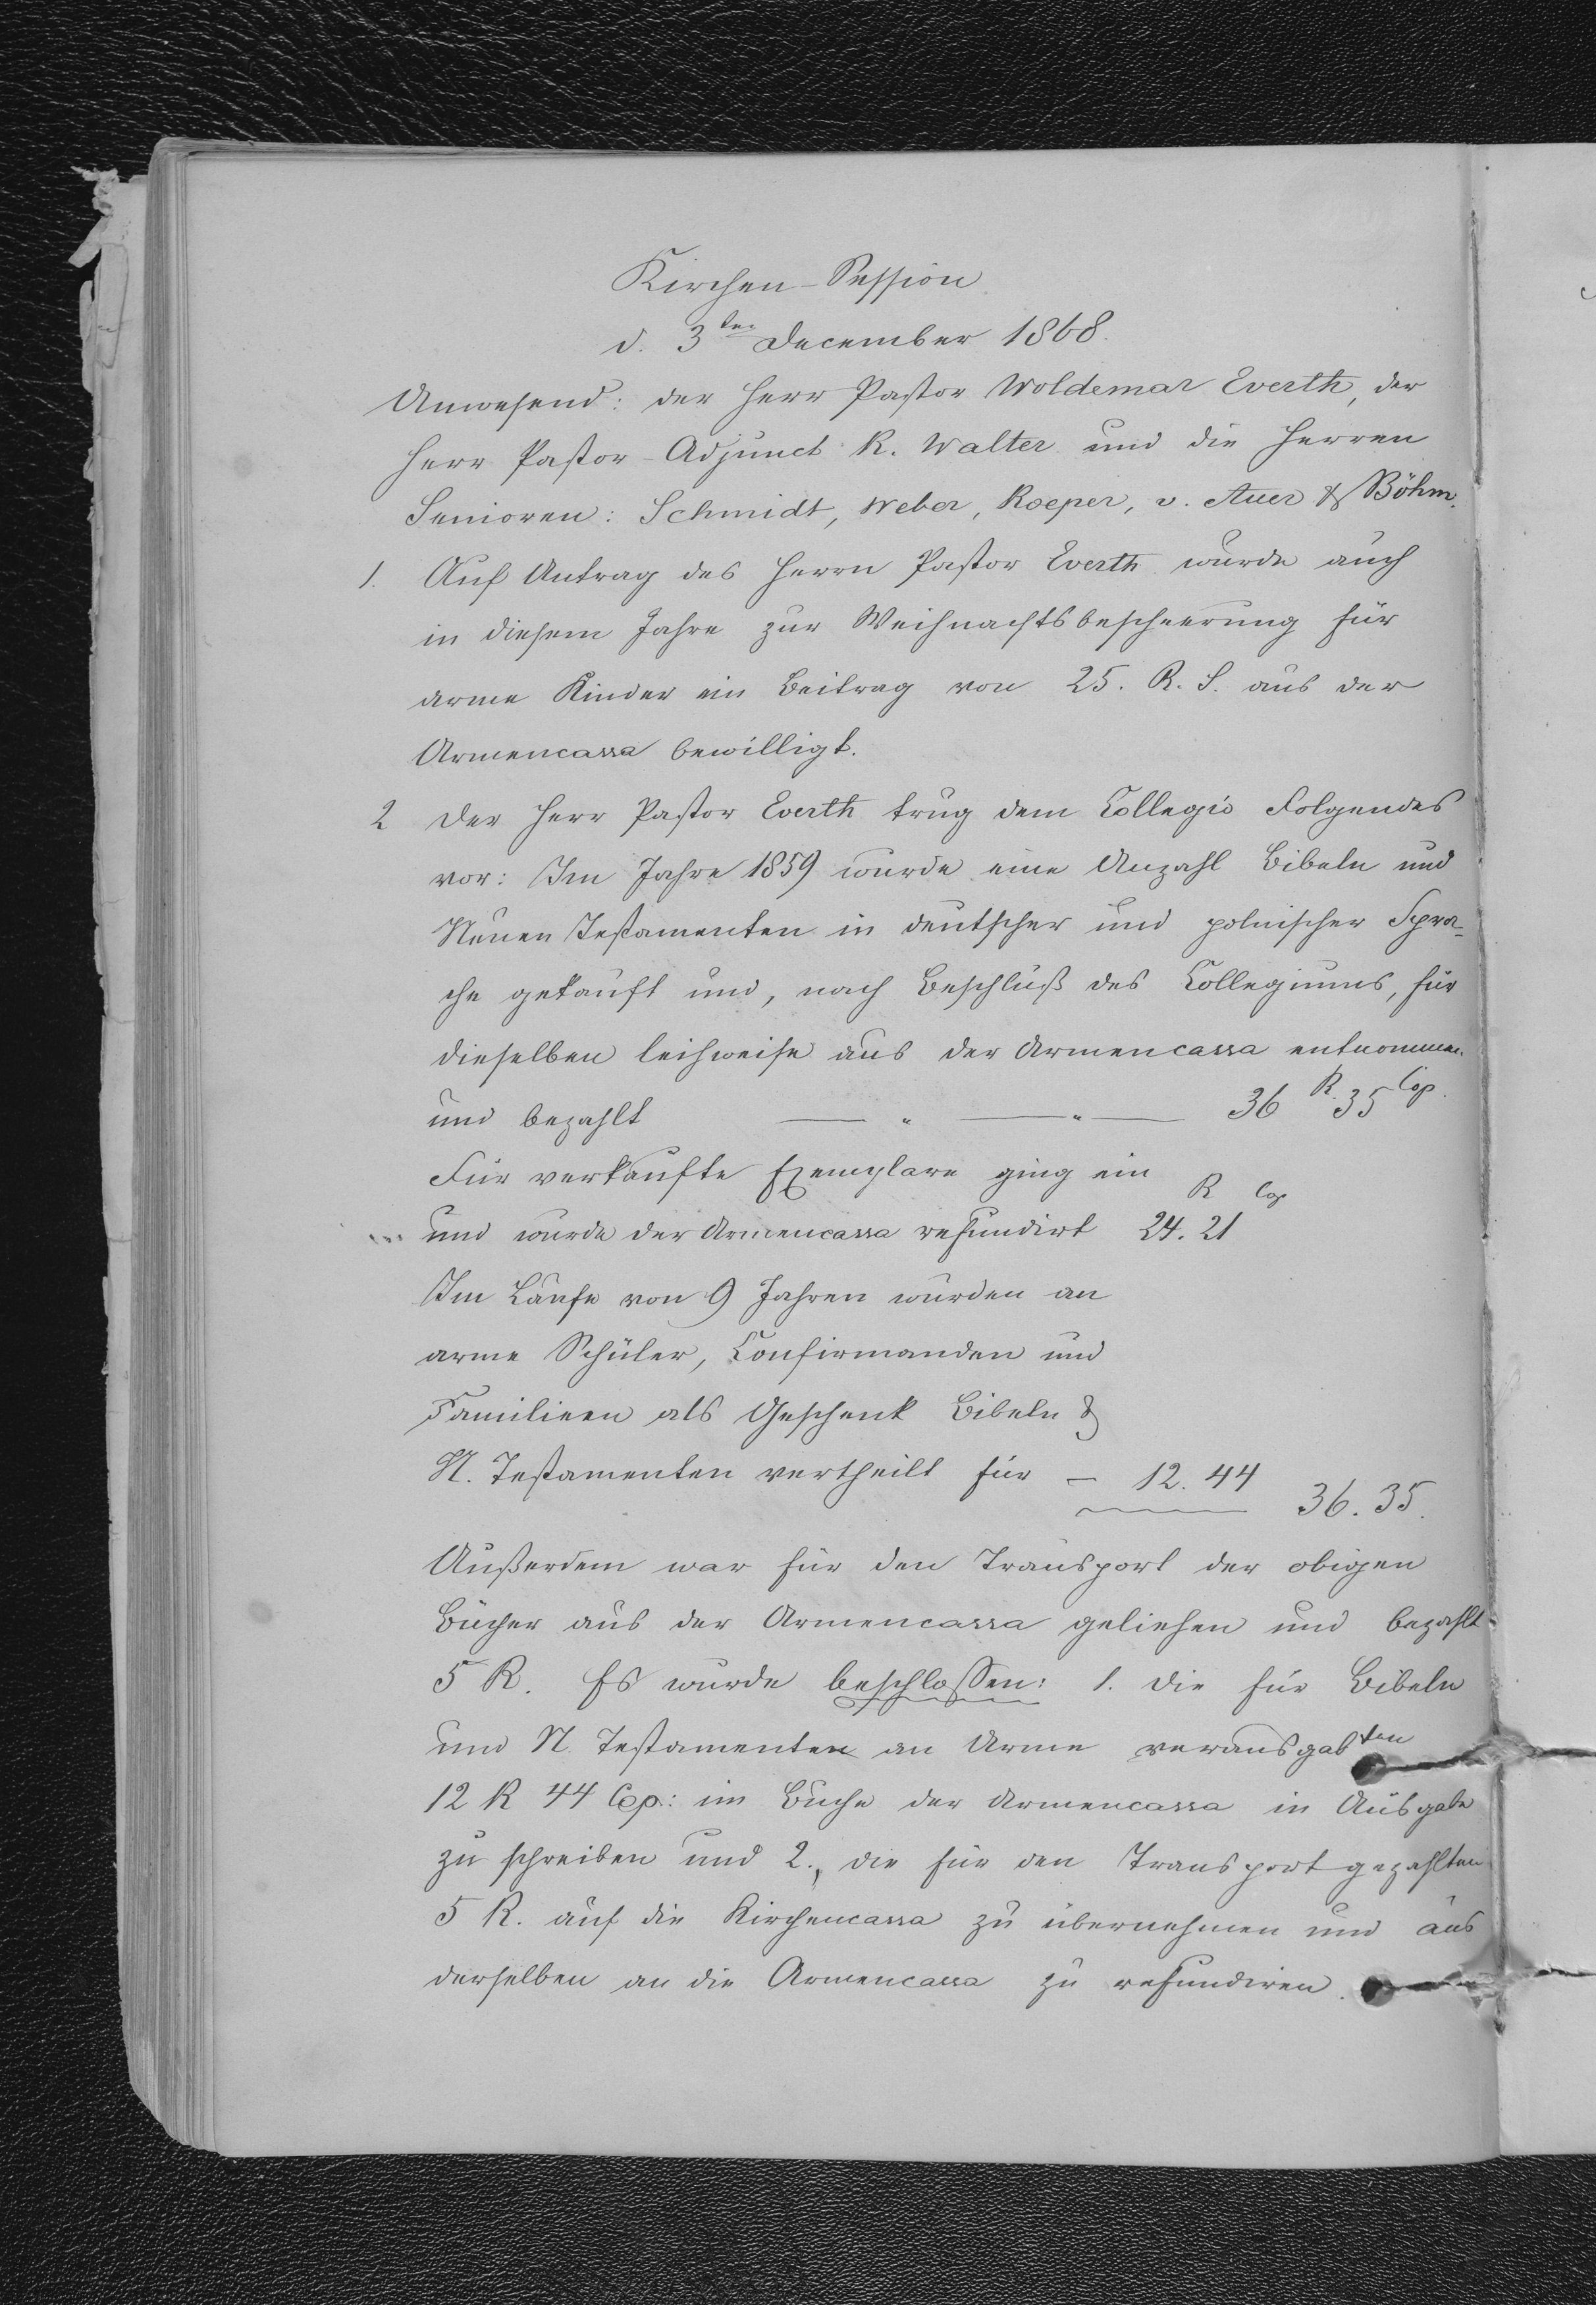 Kirchen-Session
d. 3ten December 1868.
Anwesend: der Herr Pastor Woldemar Everth, der
Herr Pastor-Adjunct R. Walter und die Herren
Senioren: Schmidt, Weber, Roeper, v. Auer & Böhm.
1. Auf Antrag des Herrn Pastor Everth wurde auch
in diesem Jahre zur Weihnachtsbescheerung für
arme Kinder ein Beitrag von 25. R. S. aus der
Armencassa bewilligt.
2 Der Herr Pastor Everth trug dem Collegio Folgendes
vor: Im Jahre 1859 wurde eine Anzahl Bibeln und
Neuen Testamenten in deutscher und polnischer Spra-
che gekauft und, nach Beschluß des Collegiums, für
dieselben leihweise aus der Armencassa entnommen
und bezahlt — " — " — 36 R. 35 Cop.
Für verkaufte Exemplare ging ein
und wurde der Armencassa refundirt 24. R 21 Cop
Im Laufe von 9 Jahren wurden an
arme Schüler, Confirmanden und
Familien als Geschenk Bibeln &
N. Testamenten vertheilt für – 12. 44
36. 35.
Außerdem war für den Transport der obigen
Bücher aus der Armencassa geliehen und bezahlt
5 R. Es wurde beschlossen: 1. die für Bibeln
und N. Testamenten an Arme verausgabten
12 R 44 Cop: im Buche der Armencassa in Ausgabe
zu schreiben und 2., die für den Transport gezahlten
5 R. auf die Kirchencassa zu übernehmen und aus
derselben an die Armencassa zu refundiren.